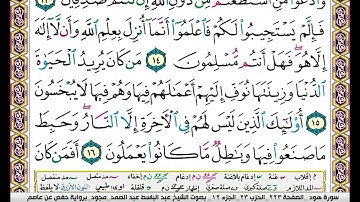 وَادْعُوا مَنِ اسْتَطَعْتُم مِّن دُونِ اللَّهِ إِن كُنتُمْ صَادِقِينَ ١٣
فَإِلَّمْ يَسْتَجِيبُوا لَكُمْ فَاعْلَمُوا أَنَّمَا أُنزِلَ بِعِلْمِ اللَّهِ وَأَن لَّا إِلَٰهَ
إِلَّا هُوَ فَهَلْ أَنتُم مُّسْلِمُونَ ١٤ مَن كَانَ يُرِيدُ الْحَيَاةَ
الدُّنْيَا وَزِينَتَهَا نُوَفِّ إِلَيْهِمْ أَعْمَالَهُمْ فِيهَا وَهُمْ فِيهَا لَا يُبْخَسُونَ
١٥ أُولَٰئِكَ الَّذِينَ لَيْسَ لَهُمْ فِي الْآخِرَةِ إِلَّا النَّارُ وَحَبِطَ
مَا صَنَعُوا فِيهَا وَبَاطِلٌ مَّا كَانُوا يَعْمَلُونَ ١٦ أَفَمَن كَانَ
سورة هود الصفحة ٢٢٣ الحزب ٢٣ الجزء ١٢ بصوت الشيخ عبد الباسط عبد الصمد مجود برواية حفص عن عاصم